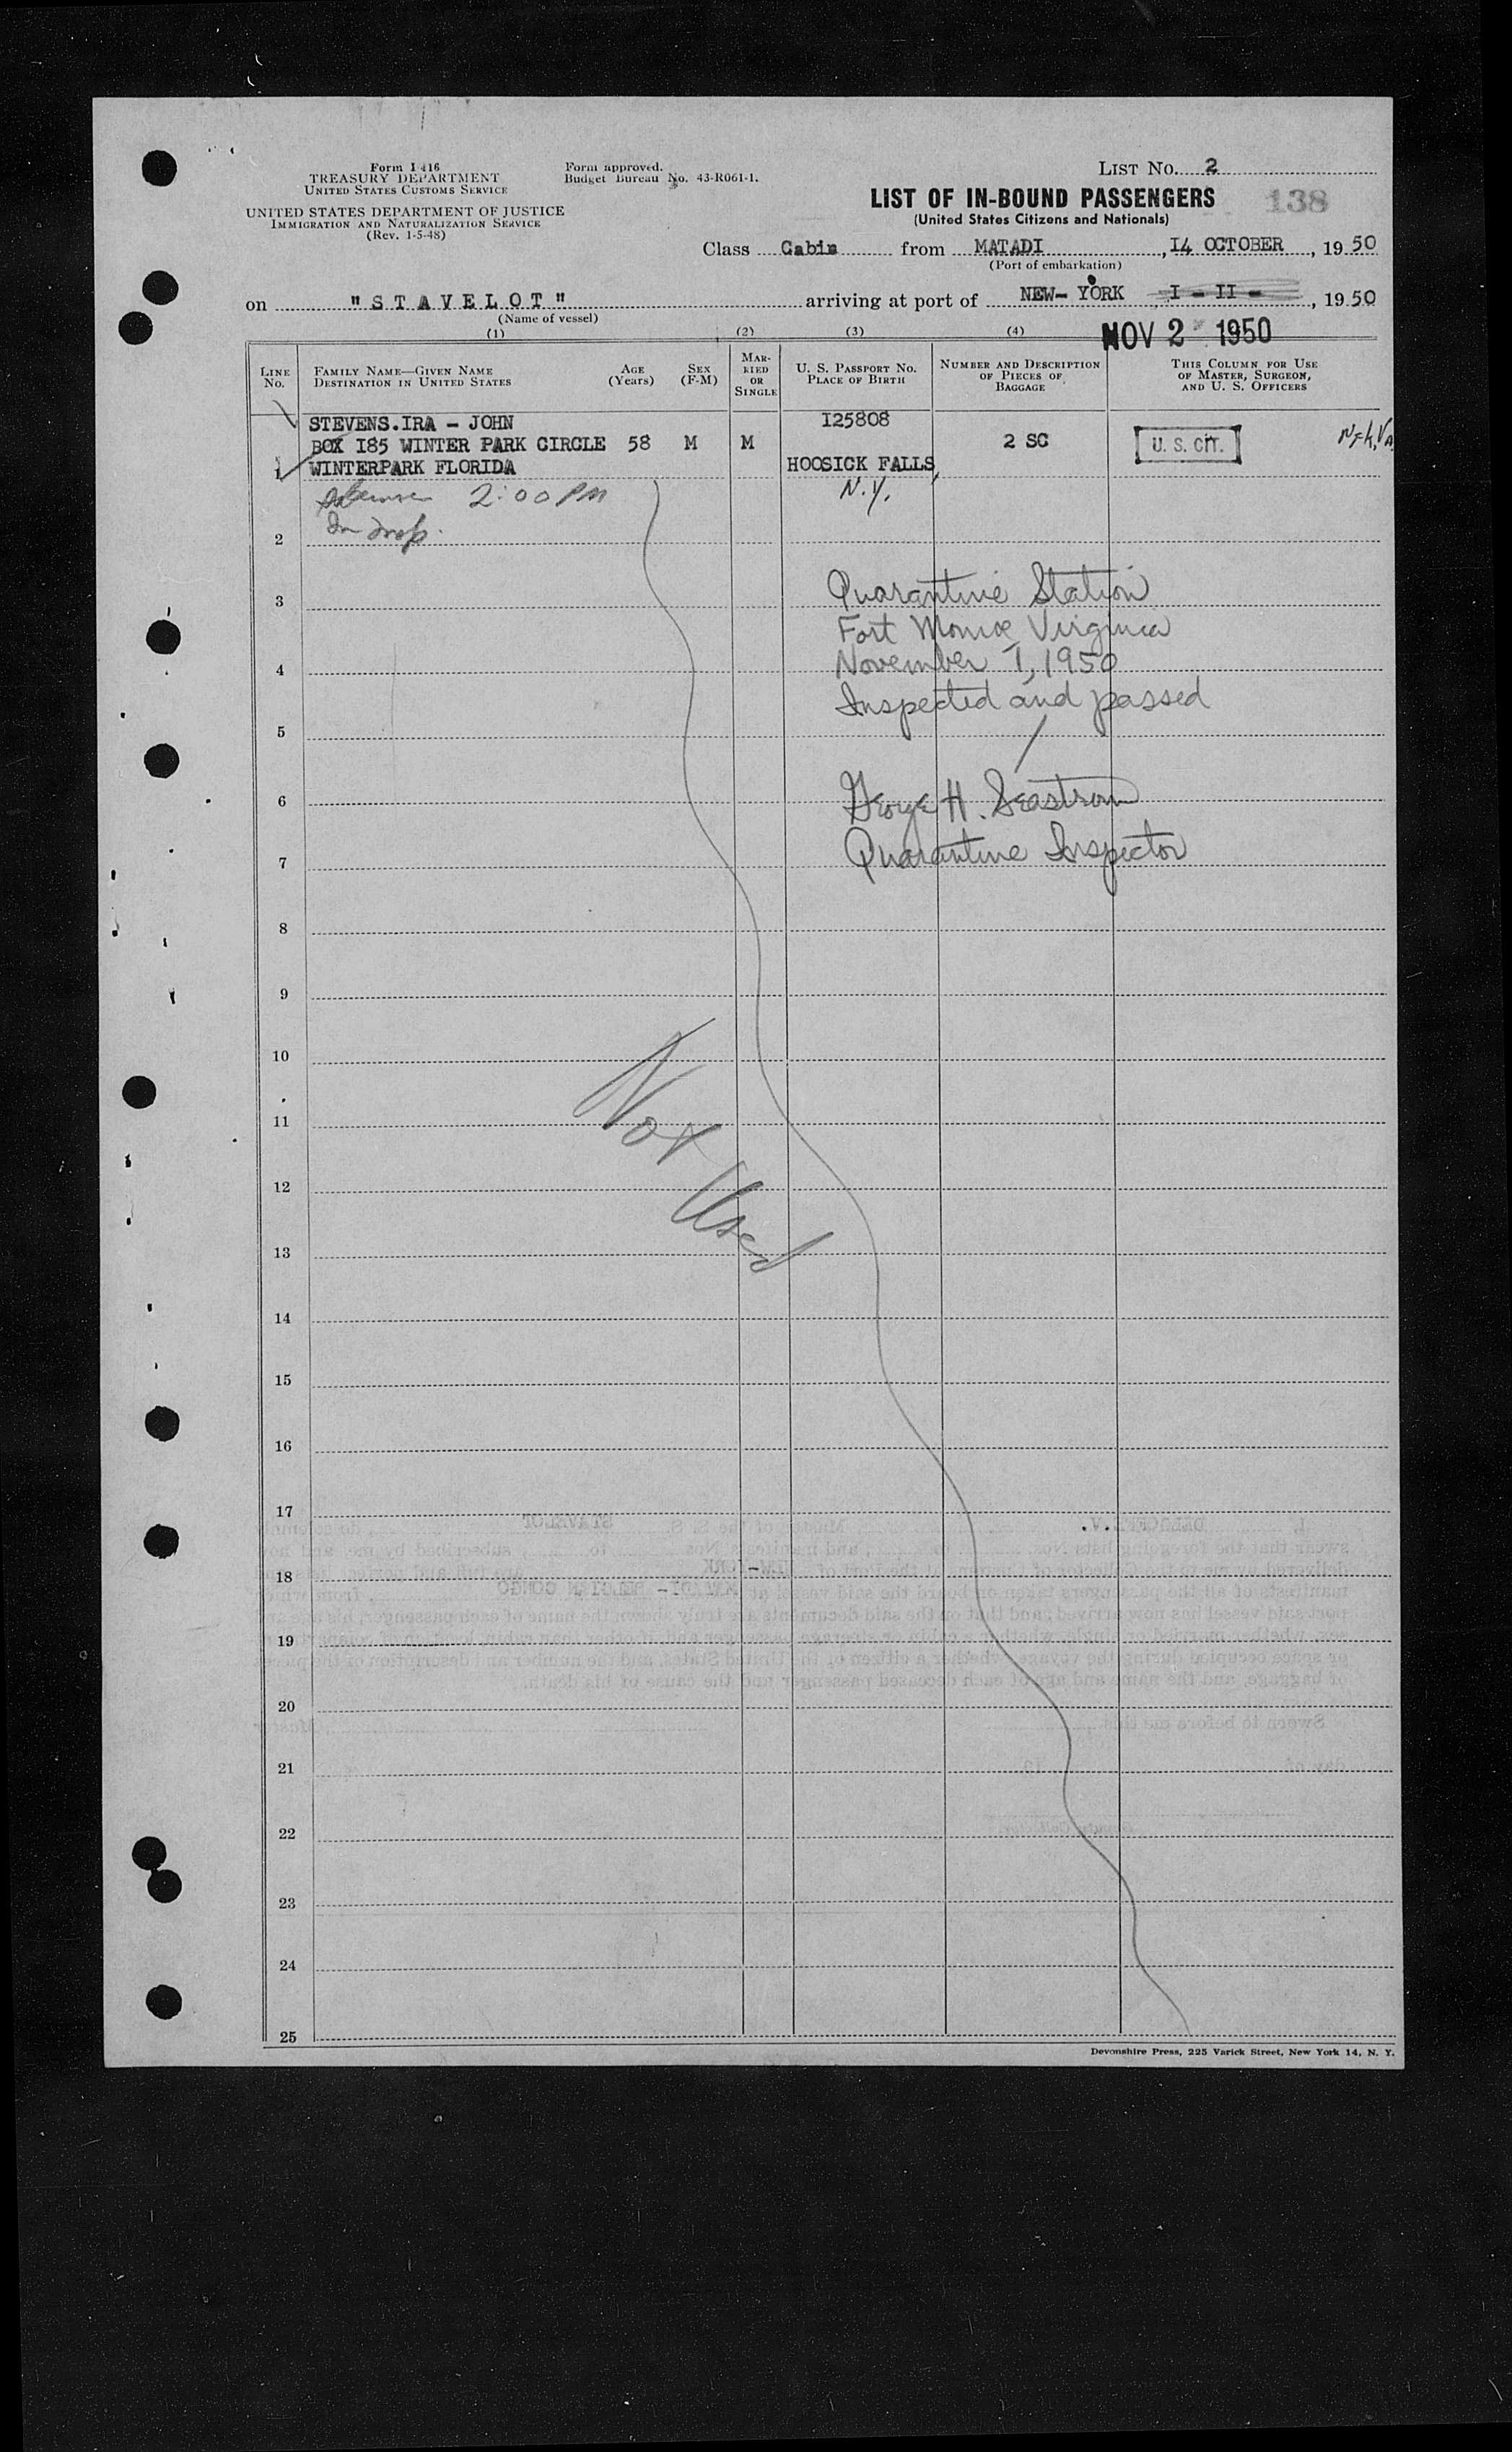 Form I 416
TREASURY DEPARTMENT
UNITED STATES CUSTOMS SERVICE
UNITED STATES DEPARTMENT OF JUSTICE
IMMIGRATION AND NATURALIZATION SERVICE
(Rev. 1-5-48)
Form approved.
Budget Bureau No. 43-R061-1.
LIST No. 2
LIST OF IN-BOUND PASSENGERS 138
(United States Citizens and Nationals)
Class Cabin from MATADI, I4 OCTOBER, 19 50
(Port of embarkation)
on "STAVELOT" arriving at port of NEW-YORK I - II -, 19 50
(Name of vessel)
NOV 2 1950
(1) (2) (3) (4)
LINE No. FAMILY NAME—GIVEN NAME DESTINATION IN UNITED STATES AGE (Years) SEX (F-M) MARRIED OR SINGLE U. S. PASSPORT NO. PLACE OF BIRTH NUMBER AND DESCRIPTION OF PIECES OF BAGGAGE THIS COLUMN FOR USE OF MASTER, SURGEON, AND U. S. OFFICERS
STEVENS.IRA - JOHN I25808
BOX I85 WINTER PARK CIRCLE 58 M M 2 SC U. S. CIT. Nfk, Va
1 WINTERPARK FLORIDA HOOSICK FALLS,
2:00 PM N.Y.
2
3 Quarantine Station
Fort Monroe Virginia
4 November 1, 1950
Inspected and passed
5
6 George H. Seastrom
7 Quarantine Inspector
8
9
10
11
12
Not Used
13
14
15
16
17
18
19
20
21
22
23
24
25
Devonshire Press, 225 Varick Street, New York 14, N. Y.